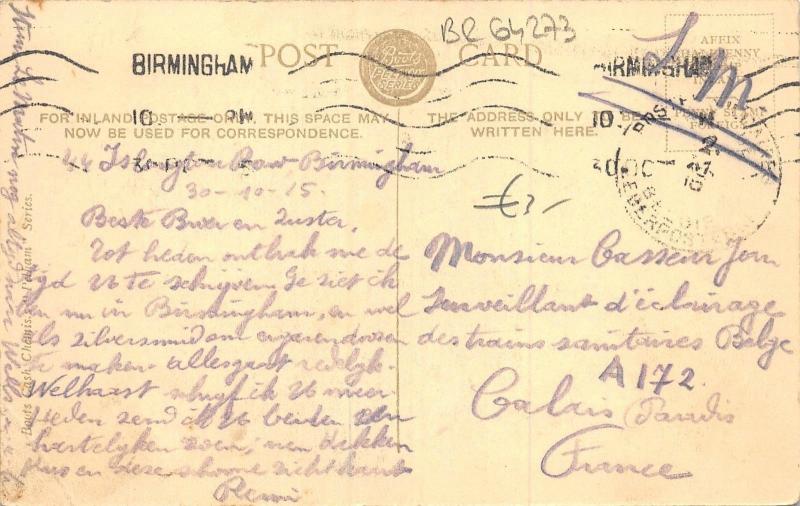 BR 64273
POST CARD
Boots PELHAM SERIES
AFFIX HALFPENNY
S.M.
BIRMINGHAM
BIRMINGHAM
10 - PM
30 OC
FOR INLAND POSTAGE ONLY, THIS SPACE MAY
NOW BE USED FOR CORRESPONDENCE.
THE ADDRESS ONLY TO BE
WRITTEN HERE.
44 Islington Row Birmingham
30-10-15.
Beste Broer en Zuster,
Tot heden ontbrak me de
tijd U te schrijven. Ge ziet ik
ben nu in Birmingham, en wel
als zilversmid om
te maken alles gaat redelijk.
Welhaast schrijf ik U meer
Heden zend ik U beiden een
hartelijken zoen, een dikken
kus en deze schoone zichtkaart
Remi
£3,-
Monsieur Casseur Jean
Surveillant d'éclairage
des trains sanitaires Belge
A 172.
Calais Paradis
France
Boots Cash Chemists "Pelham" Series.